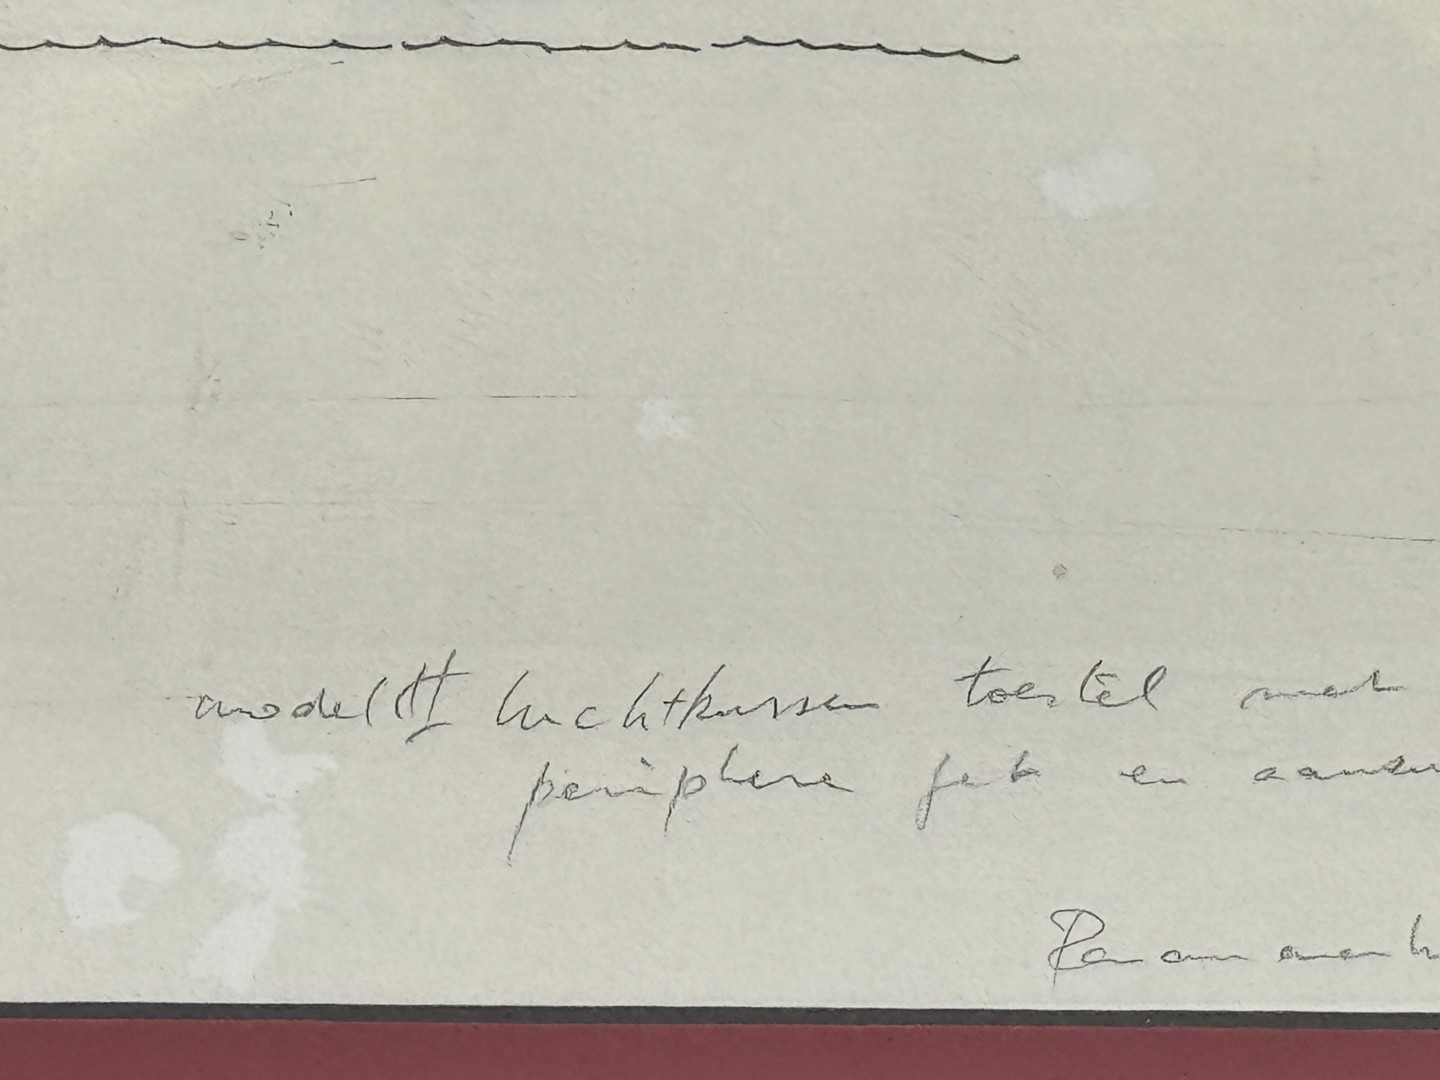 model II luchtkussen toestel met
periphere jet en
Panamarenk